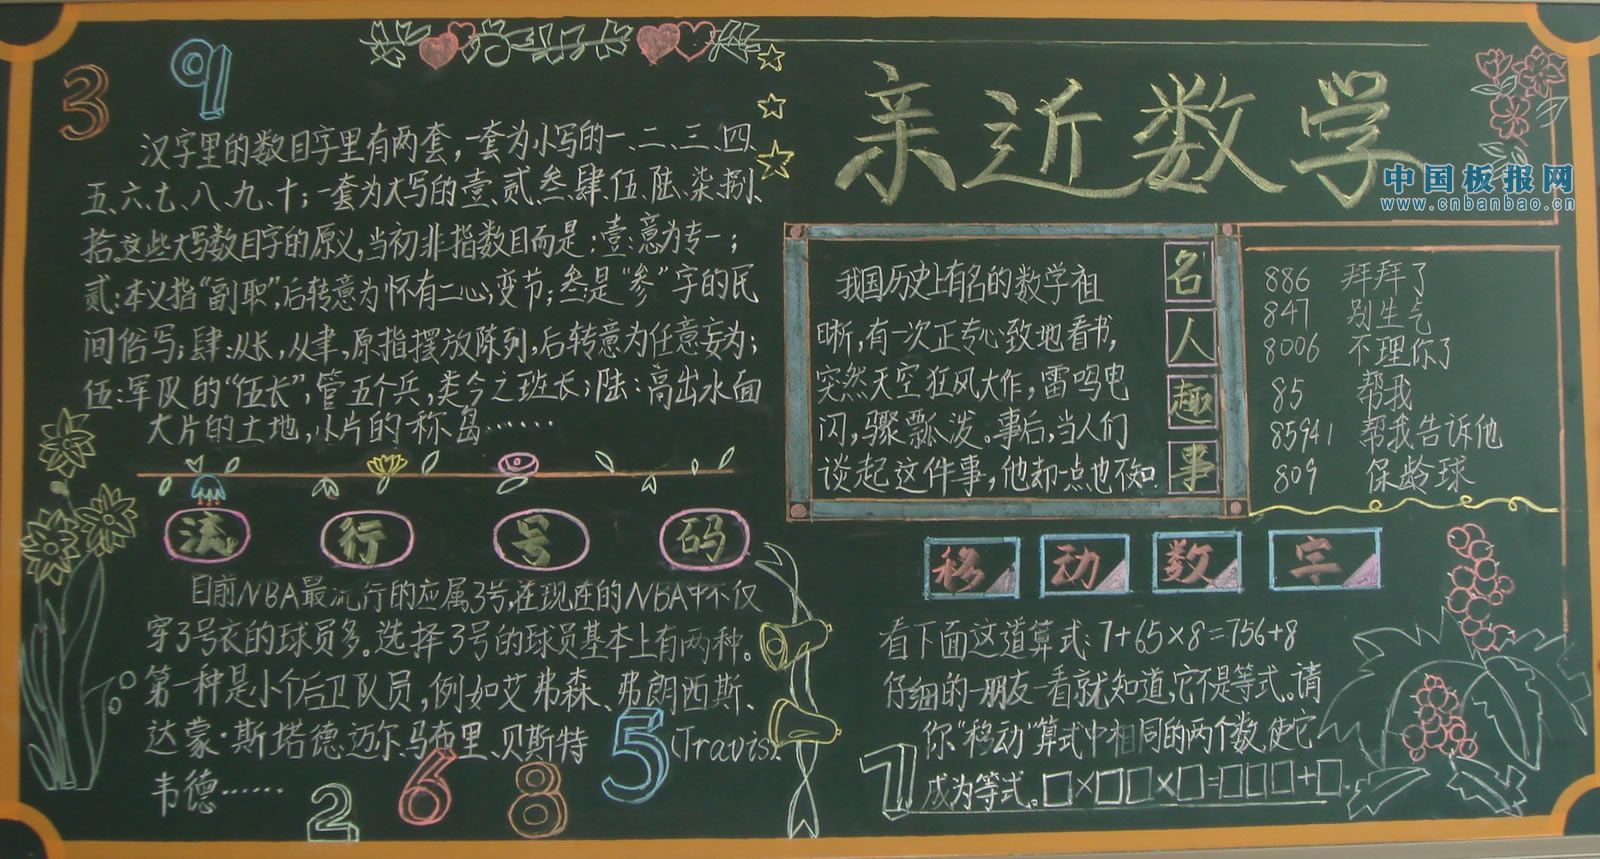 3 9
汉字里的数目字里有两套，一套为小写的一、二、三、四、
五、六、七、八、九、十；一套为大写的壹、贰、叁、肆、伍、陆、柒、捌、
拾。这些大写数目字的原义，当初非指数目而是：壹：意为专一；
贰：本义指“副职”，后转意为怀有二心，变节；叁：是“参”字的民
间俗写；肆：从长，从聿，原指摆放陈列，后转意为任意妄为；
伍：军队的“伍长”，管五个兵，类今之班长；陆：高出水面
大片的土地，小片的称岛……
流行号码
目前NBA最流行的应属3号，在现在的NBA中不仅
穿3号衣的球员多。选择3号的球员基本上有两种。
第一种是小个后卫队员，例如艾弗森、弗朗西斯、
达蒙·斯塔德迈尔、马布里、贝斯特(Travis)、
韦德……
2 6 8 5
亲近数学
中国板报网
www.cnbanbao.cn
名人趣事
我国历史上有名的数学祖
晰，有一次正专心致地看书，
突然天空狂风大作，雷鸣电
闪，骤瓢泼。事后，当人们
谈起这件事，他却一点也不知.
886 拜拜了
847 别生气
8006 不理你了
85 帮我
85941 帮我告诉他
809 保龄球
移动数字
看下面这道算式：7+65×8=756+8
仔细的一朋友一看就知道，它不是等式。请
你“移动”算式中相同的两个数，使它
成为等式。□×□□×□=□□□+□.
7